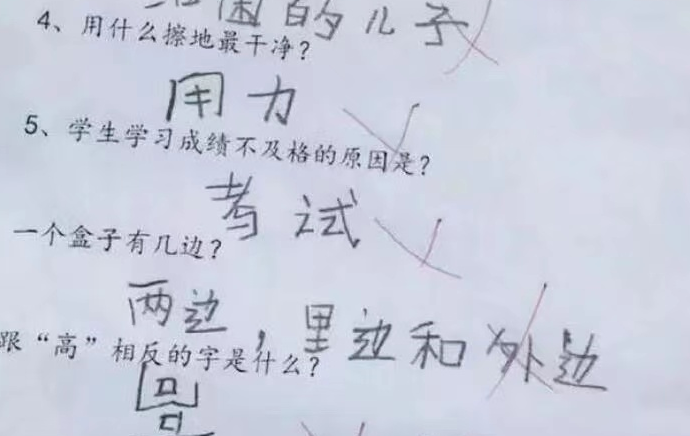 的儿子
4、用什么擦地最干净？
用力
5、学生学习成绩不及格的原因是？
考试
一个盒子有几边？
两边，里边和外边
跟“高”相反的字是什么？